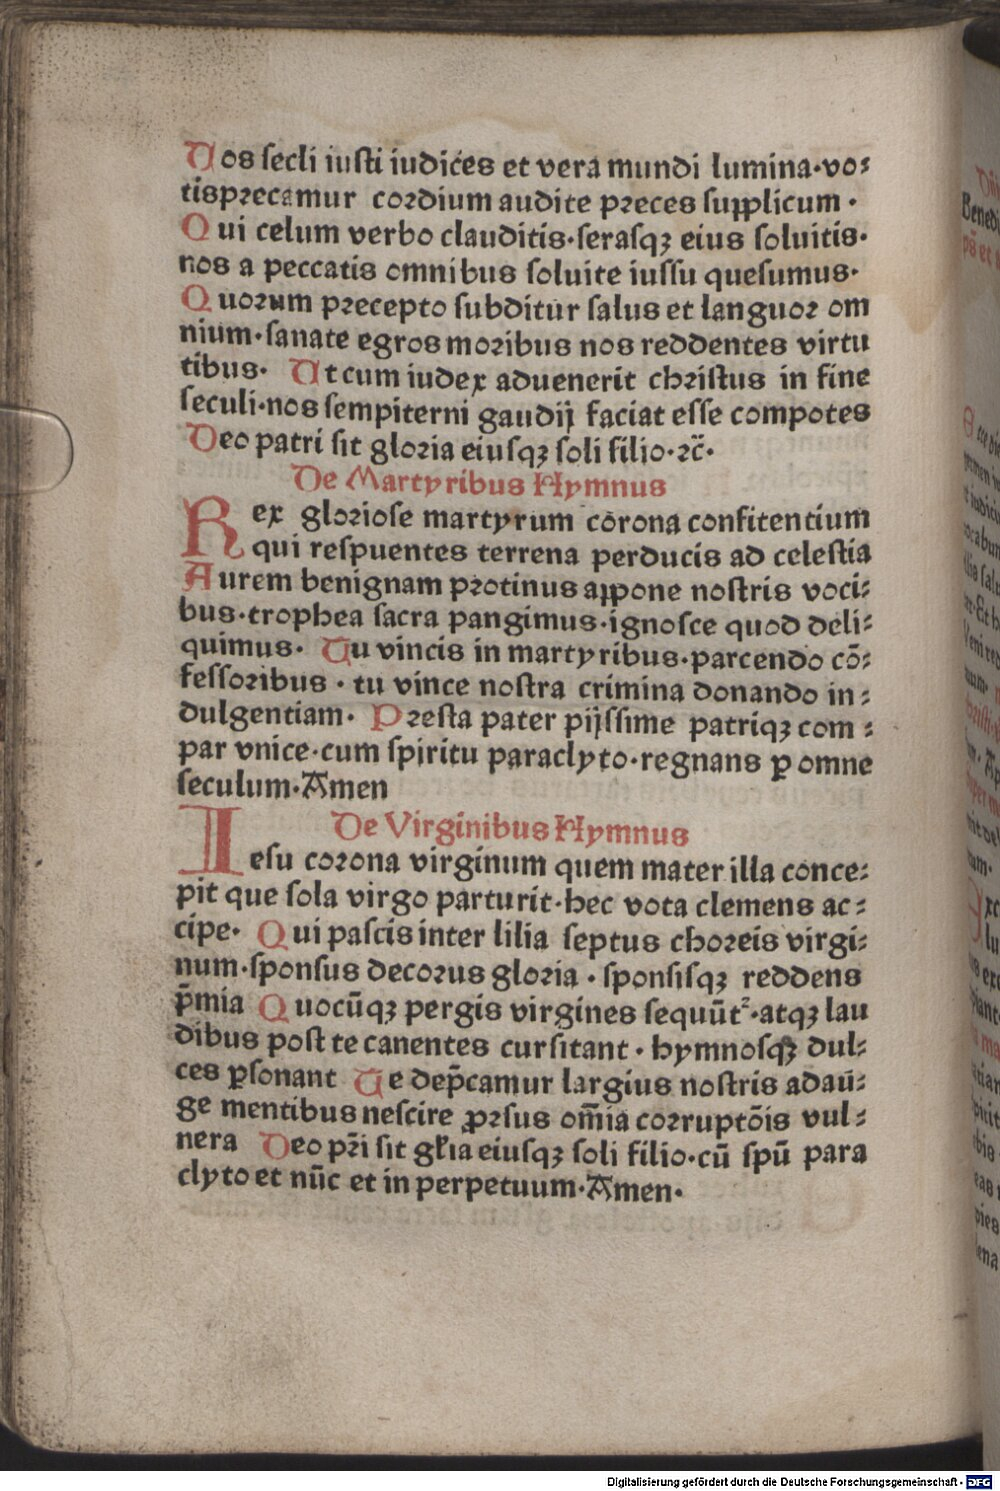 Uos secli iusti iudices et vera mundi lumina·vo⸗
tisprecamur cordium audite preces supplicum ·
Qui celum verbo clauditis·serasqꝫ eius soluitis·
nos a peccatis omnibus soluite iussu quesumus·
Quorum precepto subditur salus et languor om
nium·sanate egros moribus nos reddentes virtu
tibus· Ut cum iudex aduenerit christus in fine
seculi·nos sempiterni gaudij faciat esse compotes
Deo patri sit gloria eiusqꝫ soli filio·ꝛc̃·
De Martyribus Hymnus
Rex gloriose martyrum corona confitentium
qui respuentes terrena perducis ad celestia
Aurem benignam protinus appone nostris voci⸗
bus·trophea sacra pangimus·ignosce quod deli⸗
quimus· Tu vincis in martyribus·parcendo cō⸗
fessoribus · tu vince nostra crimina donando in⸗
dulgentiam· Presta pater pijssime patriqꝫ com⸗
par vnice·cum spiritu paraclyto·regnans ꝑ omne
seculum·Amen
De Virginibus Hymnus
Iesu corona virginum quem mater illa conce⸗
pit que sola virgo parturit·hec vota clemens ac⸗
cipe· Qui pascis inter lilia septus choreis virgi⸗
num·sponsus decorus gloria · sponsisqꝫ reddens
p̄mia Quocūqꝫ pergis virgines sequūt᷑·atqꝫ lau
dibus post te canentes cursitant · hymnosqꝫ dul⸗
ces ꝑsonant Te dep̄camur largius nostris adau⸗
ge mentibus nescire ꝓrsus om̄ia corruptōis vul⸗
nera Deo pr̄i sit gl̄ia eiusqꝫ soli filio·cū spū para
clyto et nūc et in perpetuum·Amen·
Benedi
Digitalisierung gefördert durch die Deutsche Forschungsgemeinschaft - DFG